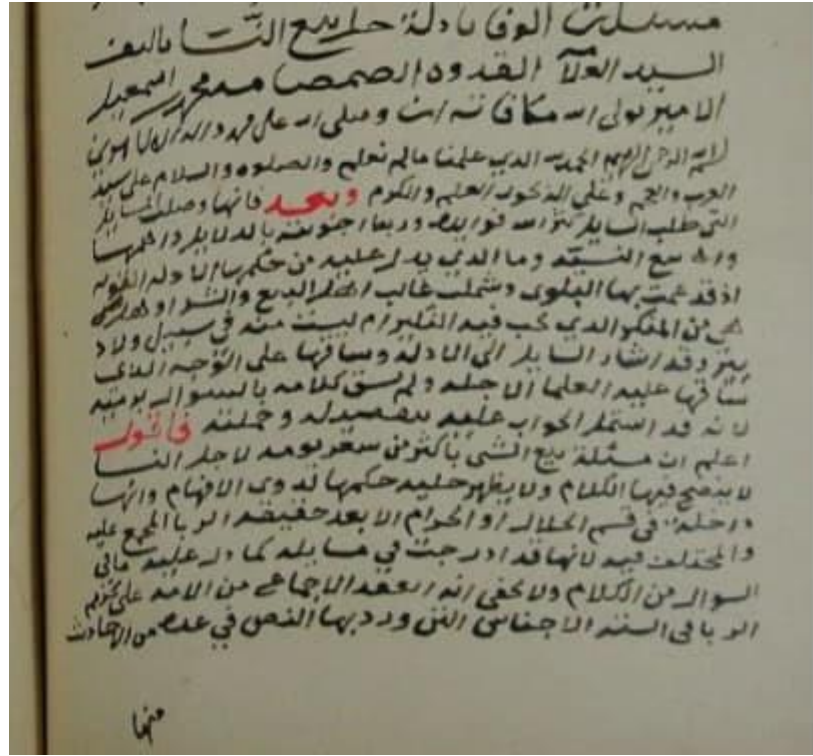 مسئلة في الوفا بادلة حل بيع النسا تاليف
السيد العلامة القدوه الصمصامه محمد بن اسمعيل
الامير تولى الله مكافاته امين وصلى الله على محمد واله
بسم الله الرحمن الرحيم الحمد لله الذي علمنا مالم نعلم والصلوه والسلام على سيد
العرب والعجم وعلى اله بحور العلم والكرم وبعد فانها وصلت المسايل
التي طلب السايل كثر الله فوايده وربما اجوبته بالدلايل واهمها
بيع النسيه وما الذي يدل عليه من حكمها الادله القويه
اذ قد عمت بها البلوى وشملت غالب اهل البيع والشرا وهل
هي من المنكر الذي يجب فيه النكير ام ليست منه في سبيل ولا
وقد اشار السايل الى الادله وساقها على الوجه الذي
ساقها عليه العلما الاجله ولم نسق كلامه بالسوال برمته
لانه قد اشتمل الجواب عليه بتفصيله وجملته فاقول
اعلم ان مسئلة بيع الشي باكثر من سعر يومه لاجل النسا
لا يتضح فيها الكلام ولا يظهر جلية حكمها لذوي الافهام وانها
داخلة في قسم الحلال او الحرام الا بعد حقيقة الربا المجمع عليه
والمختلف فيه لانها قد ادرجت في مسايله كما دل عليه ما في
السوال من الكلام ولا يخفى انه انعقد الاجماع من الامه على تحريم
الربا في السته الاجناس التي ورد بها النص في عدة من الاحاديث
منها